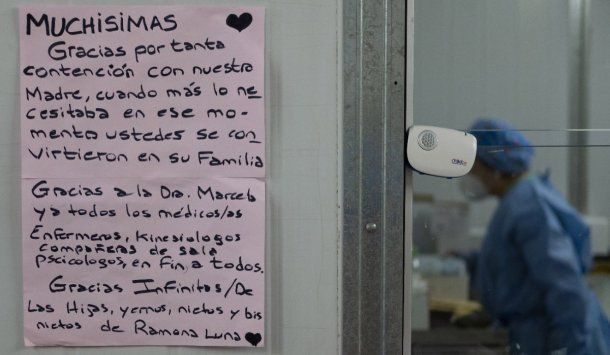 MUCHÍSIMAS
Gracias por tanta
contención con nuestra
Madre, cuando más lo ne
cesitaba en ese mo-
mento ustedes se con
virtieron en su Familia
Gracias a la Dra. Marcela
y a todos los médicos/as
Enfermeros, kinesiologos
compañeras de sala
pscicologos, en fin, a todos.
Gracias Infinitas/De
Las Hijas, yernos, nietos y bis
nietos de Ramona Luna